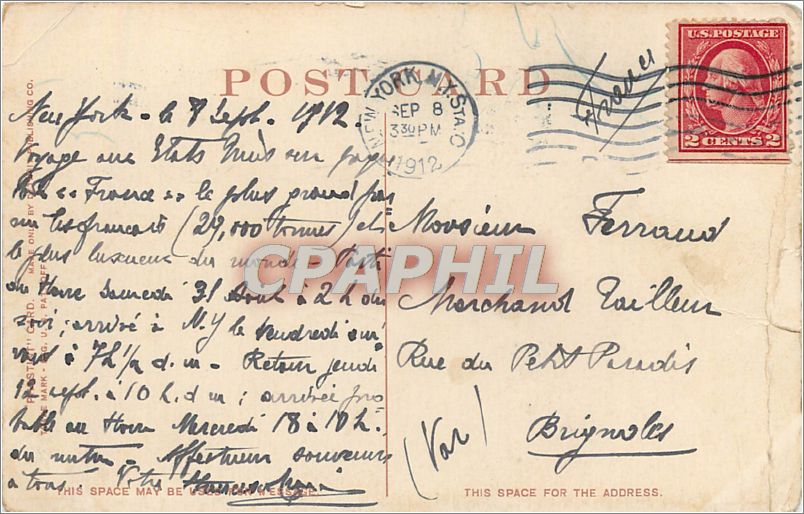 POST CARD
U.S. POSTAGE
2 CENTS 2
NEW YORK, N.Y. STA. O
SEP 8
330 PM
1912
France
New York - le 7 Sept. 1912 -
Voyage aux Etats Unis sur paque
bot "France" le plus grand paq
(29,000 tonnes) et
le plus luxueux du monde - Parti
du Havre Samedi 31 Août à 2 h du
soir; arrivé à N.Y le Vendredi sui
vant à 7h 1/2 d. m - Retour jeudi
12 Sept. à 10 h. d m; arrivée pro
bable au Havre Mercredi 18 à 10 h.
du matin - Affectueux souvenirs
à tous. Votre
Monsieur Ferraud
Marchand Tailleur
Rue du Petit Paradis
Brignoles
(Var)
CPAPHIL
THIS SPACE MAY BE USED FOR MESSAGE.
THIS SPACE FOR THE ADDRESS.